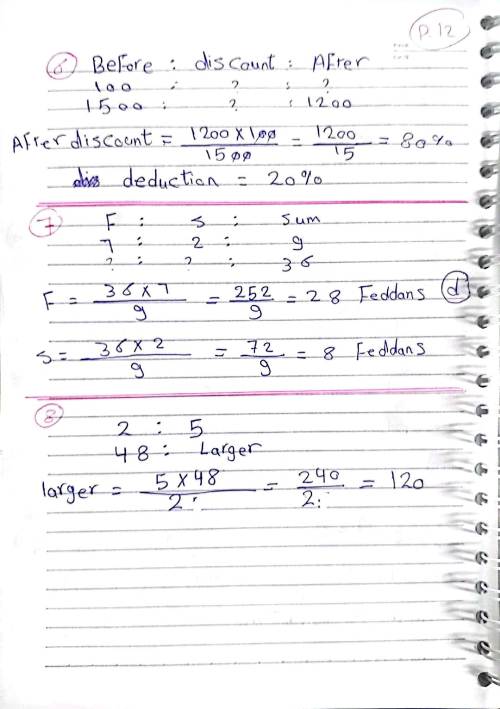 P.12
6 Before : discount : After
100 : ? : ?
1500 : ? : 1200
After discount = 1200 x 100 / 1500 = 1200 / 15 = 80%
deduction = 20%
7 F : S : Sum
7 : 2 : 9
? : ? : 36
F = 36 x 7 / 9 = 252 / 9 = 28 Feddans d
S = 36 x 2 / 9 = 72 / 9 = 8 Feddans
8
2 : 5
48 : Larger
larger = 5 x 48 / 2 = 240 / 2 = 120